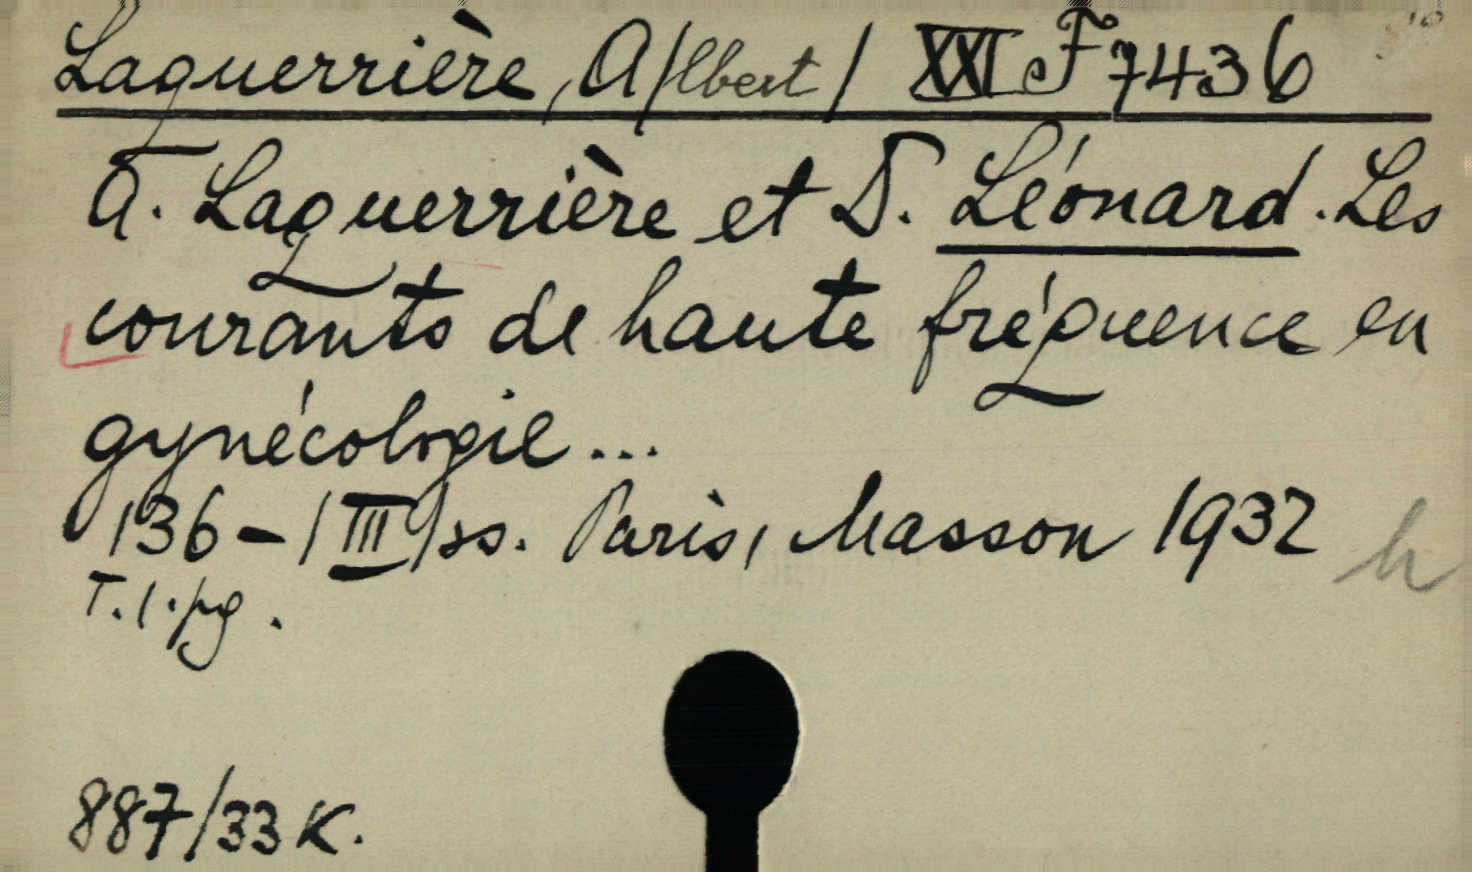 Laquerrière, A/lbert/ XXI e F 7436
A. Laquerrière et D. Léonard. Les
courants de haute fréquence en
gynécologie...
136 - /III/ ss. Paris, Masson 1932
T. l. pg.
887/33 K.
h